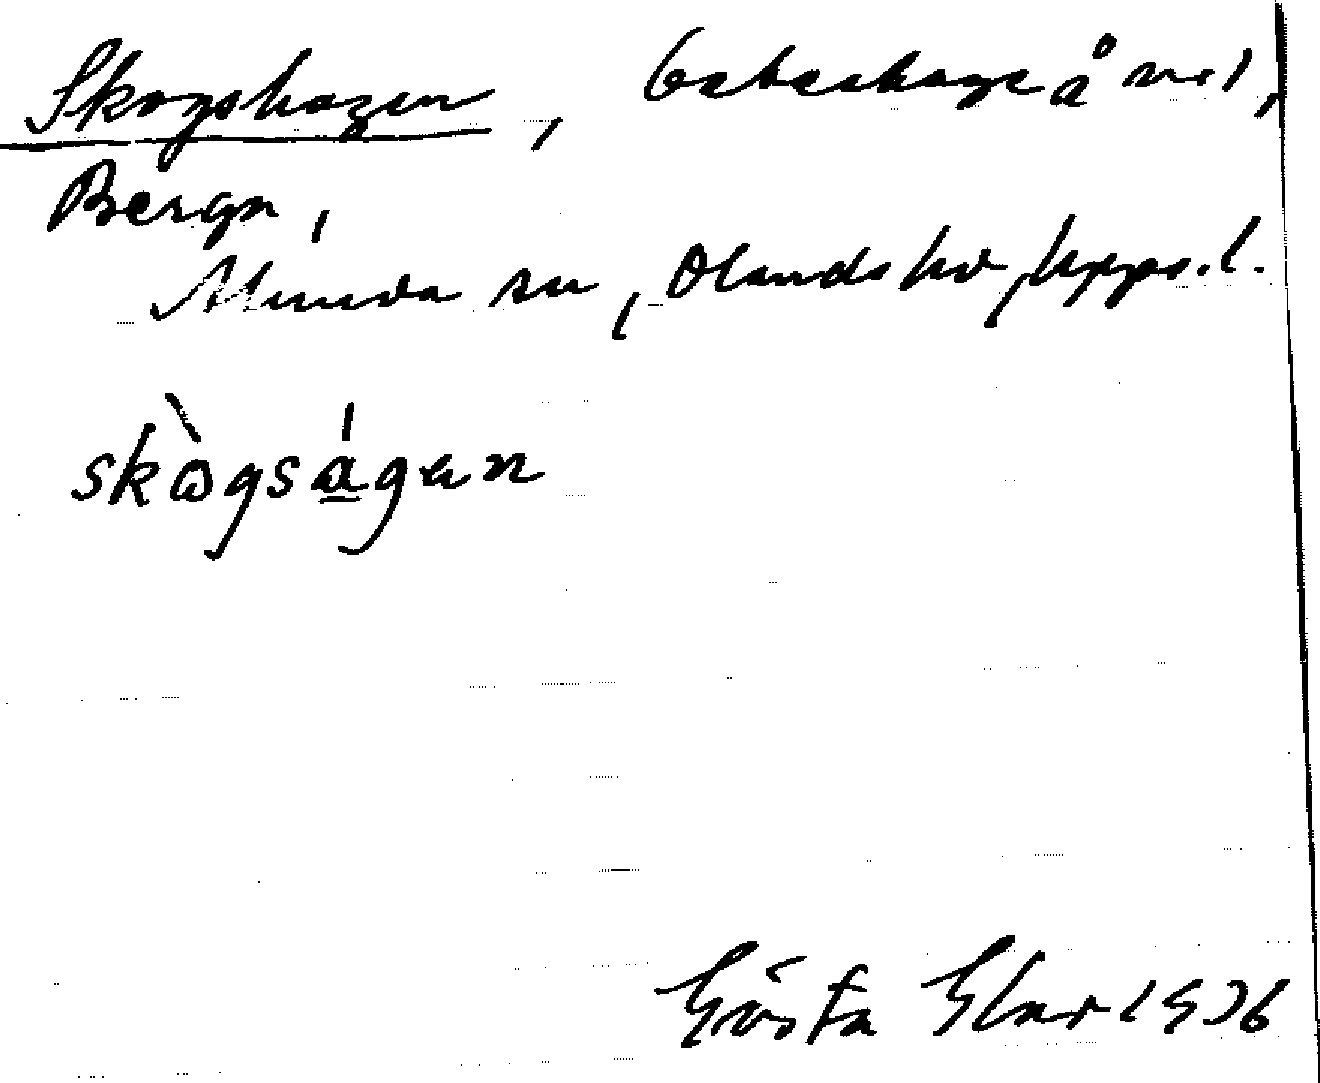 Skogshagen, beteshage å mel,
Bergn,
Alunda sn, Olands hd, Upps. l.
skògság̱en
Gösta 1936